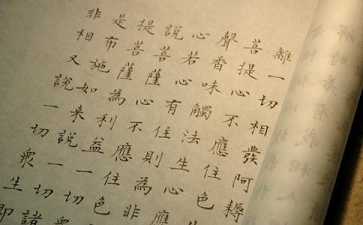 離一切相發阿耨
菩提心不應住色
聲香味觸法生心應
心若心有住則為非
說菩薩心不應住色
提菩薩為利益一切衆
是布施如来說一切諸
非相又說一切衆生即